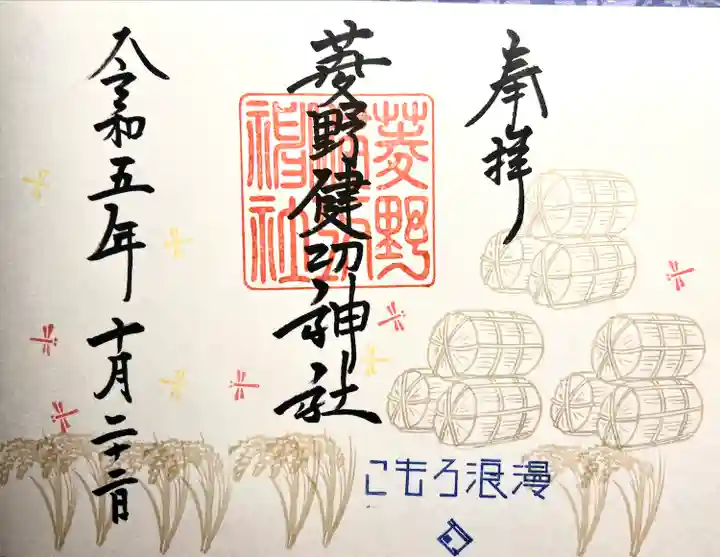 奉拝
菱野健功神社
菱野健功神社
令和五年十月二十二日
こもろ浪漫